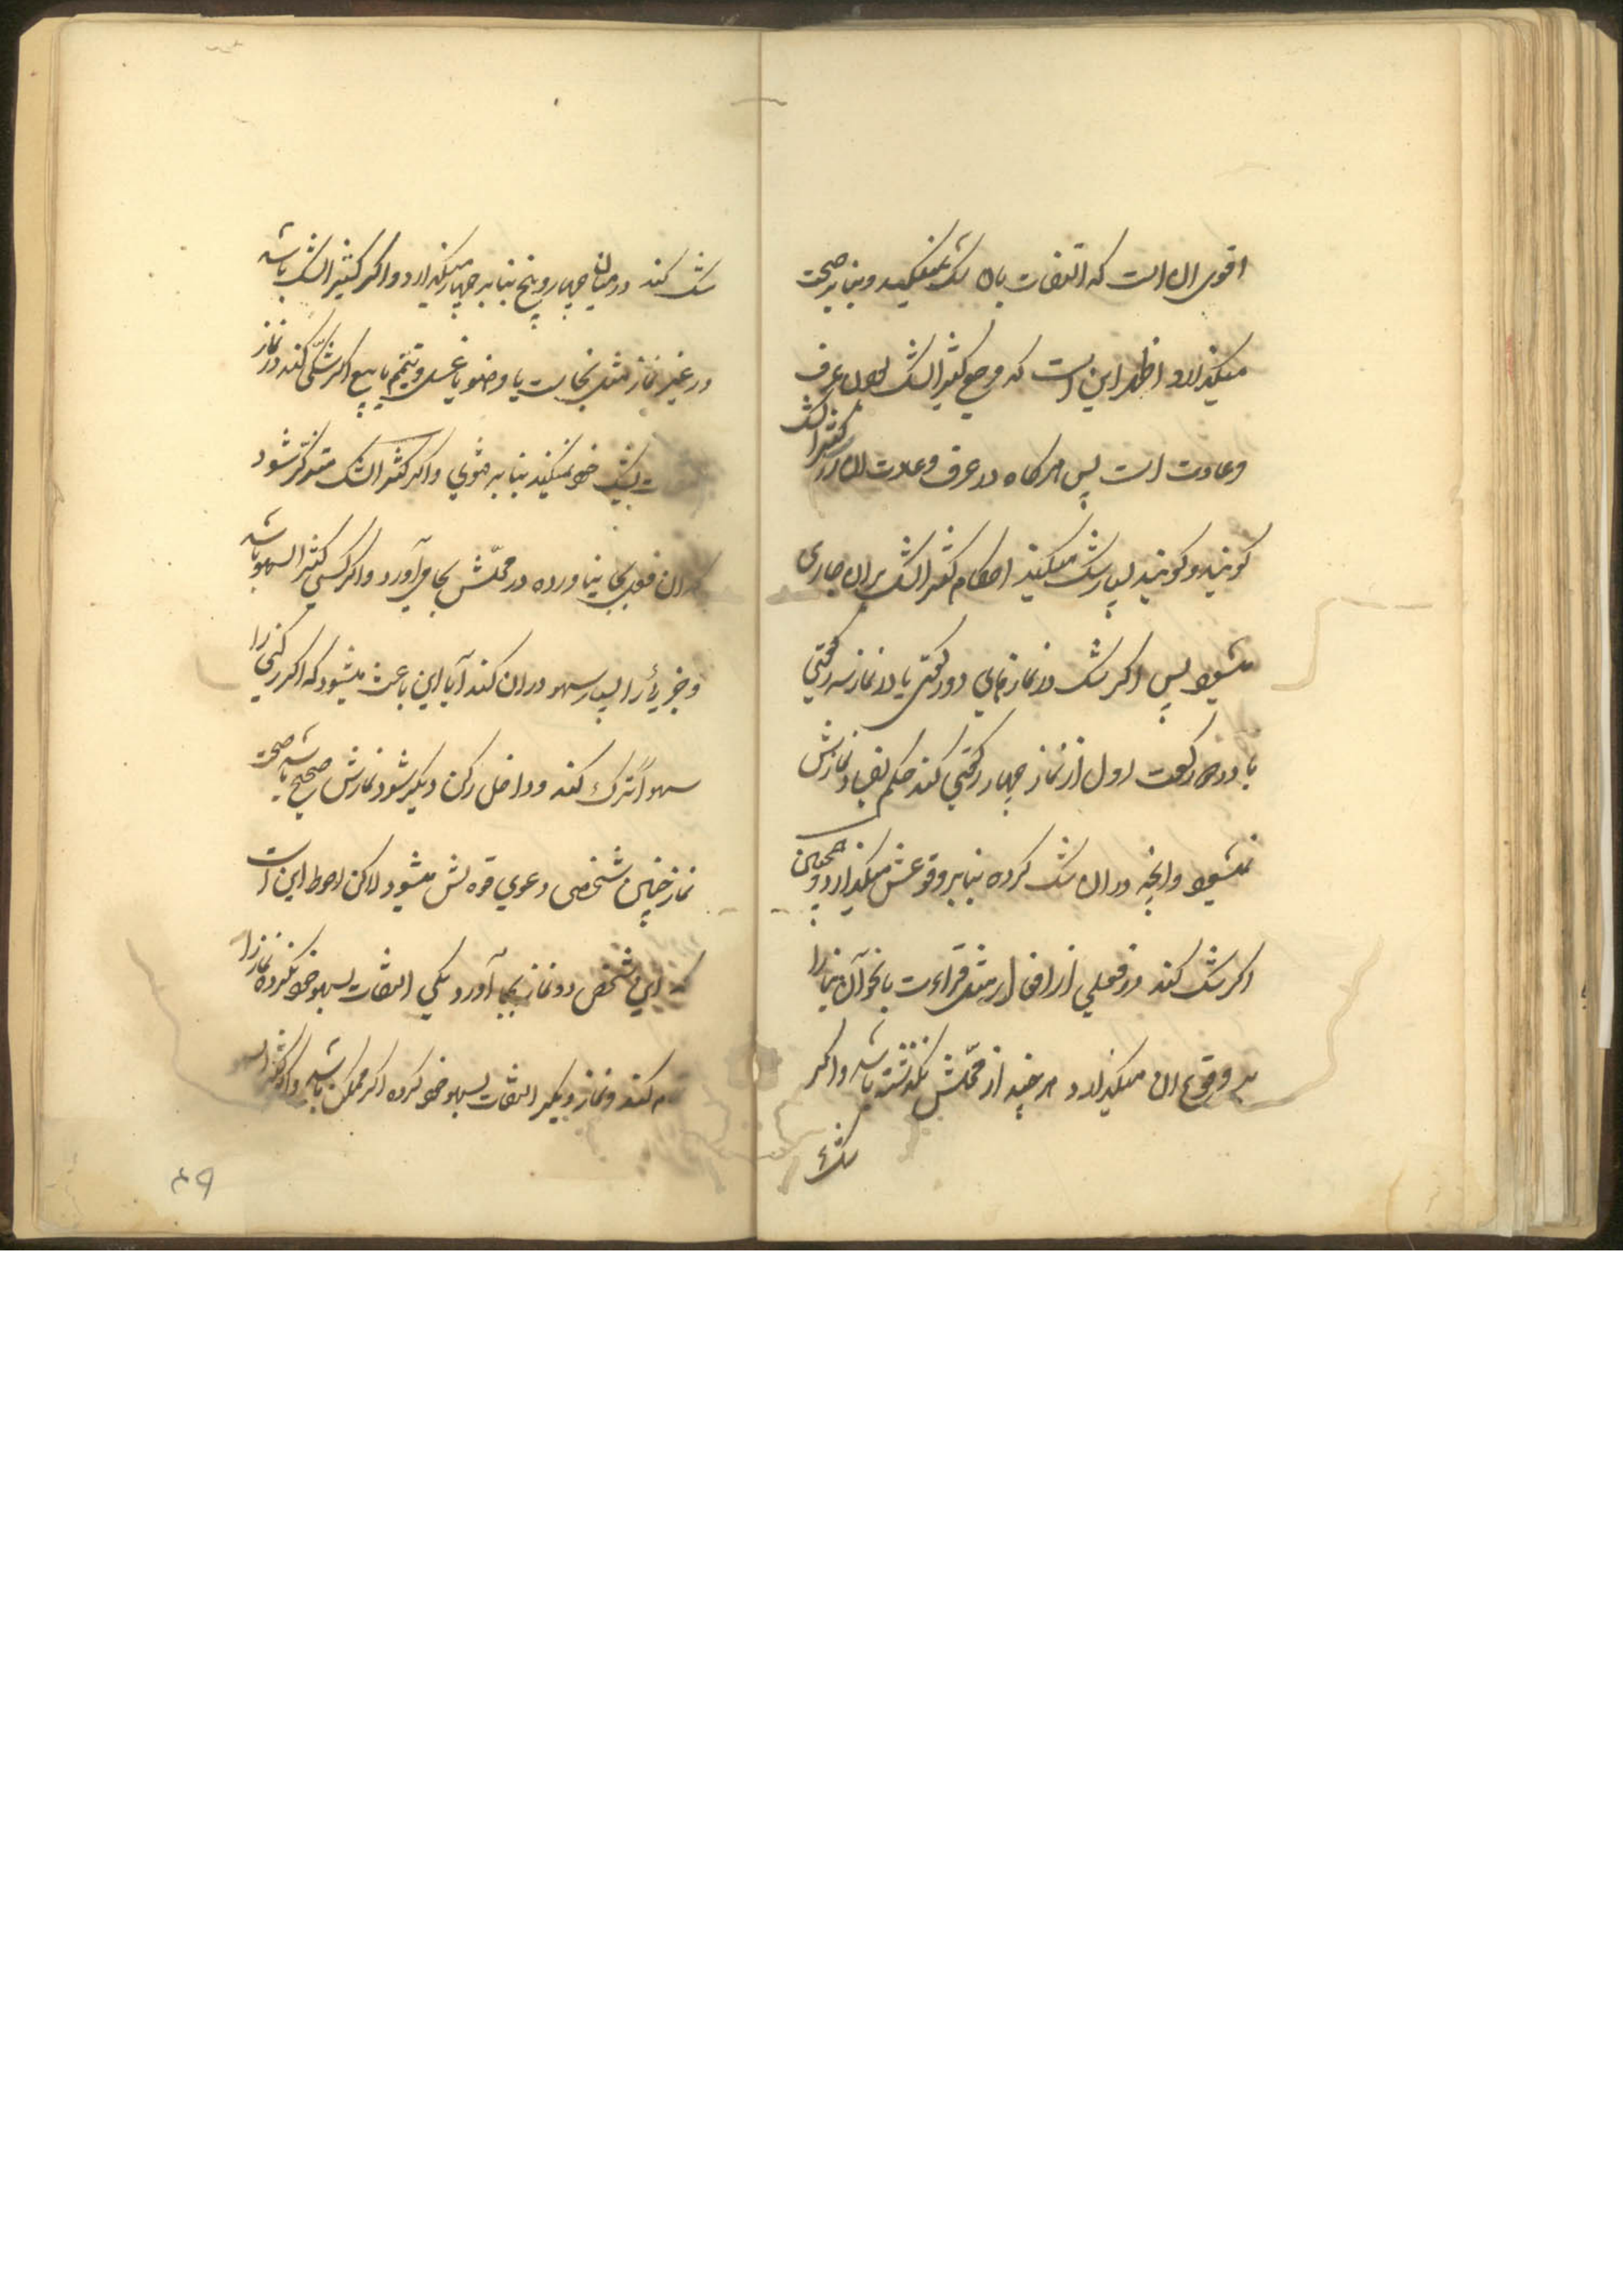 اقوی ان است که التفات بان شک نمیکند و بنا بر صحت
میکذارد و اظهر این است که مرجع کثیر الشک بودن عرف
و عادت است پس هرکاه در عرف و عادت ان را کثیر الشک
کویند و کویند بسیار شک میکند احکام کثیر الشک بر ان جاری
میشود پس اکر شک در نماز های دو رکعتی یا در نماز سه رکعتی
یا دو رکعت اول از نماز چهار رکعتی کند حکم بفساد نمازش
نمیشود و انچه در ان شک کرده بنا بر وقوعش میکذارد و همچنین
اکر شک کند در فعلی از افعال مثل قراءت یا نحو آن بنا را
بر وقوع ان میکذارد هر چند از محلّش نکذشته باشد و اکر
شک
شک کند در میان چهار و پنج بنا بر چهار میکذارد و اکر کثیر الشک باشد
در غیر نماز مثل نجاست یا وضو یا غسل و تیمّم یا بیع اکر شکّی کند در نماز
بشک خود نمیکند بنا بر مثوی و اکر کثیر الشک متذکّر شود
که ان فعل بجا نیاورده در محلّش بجا می آورد و اکر کسی کثیر السهو باشد
و جزئی را بسیار سهو در ان کند آیا این باعث میشود که اکر رکنی را
سهواً ترک کند و داخل رکن دیکر شود نمازش صحیح باشد صحت
نماز چنین شخصی دعوی قوه اش میشود لاکن احوط این است
که این شخص دو نماز بجا آورد یکی التفات بسهو خود نکرده نماز را
تمام کند و نماز دیکر التفات بسهو خود کرده اکر ممکن باشد و اکر کثیر السهو
۴۹